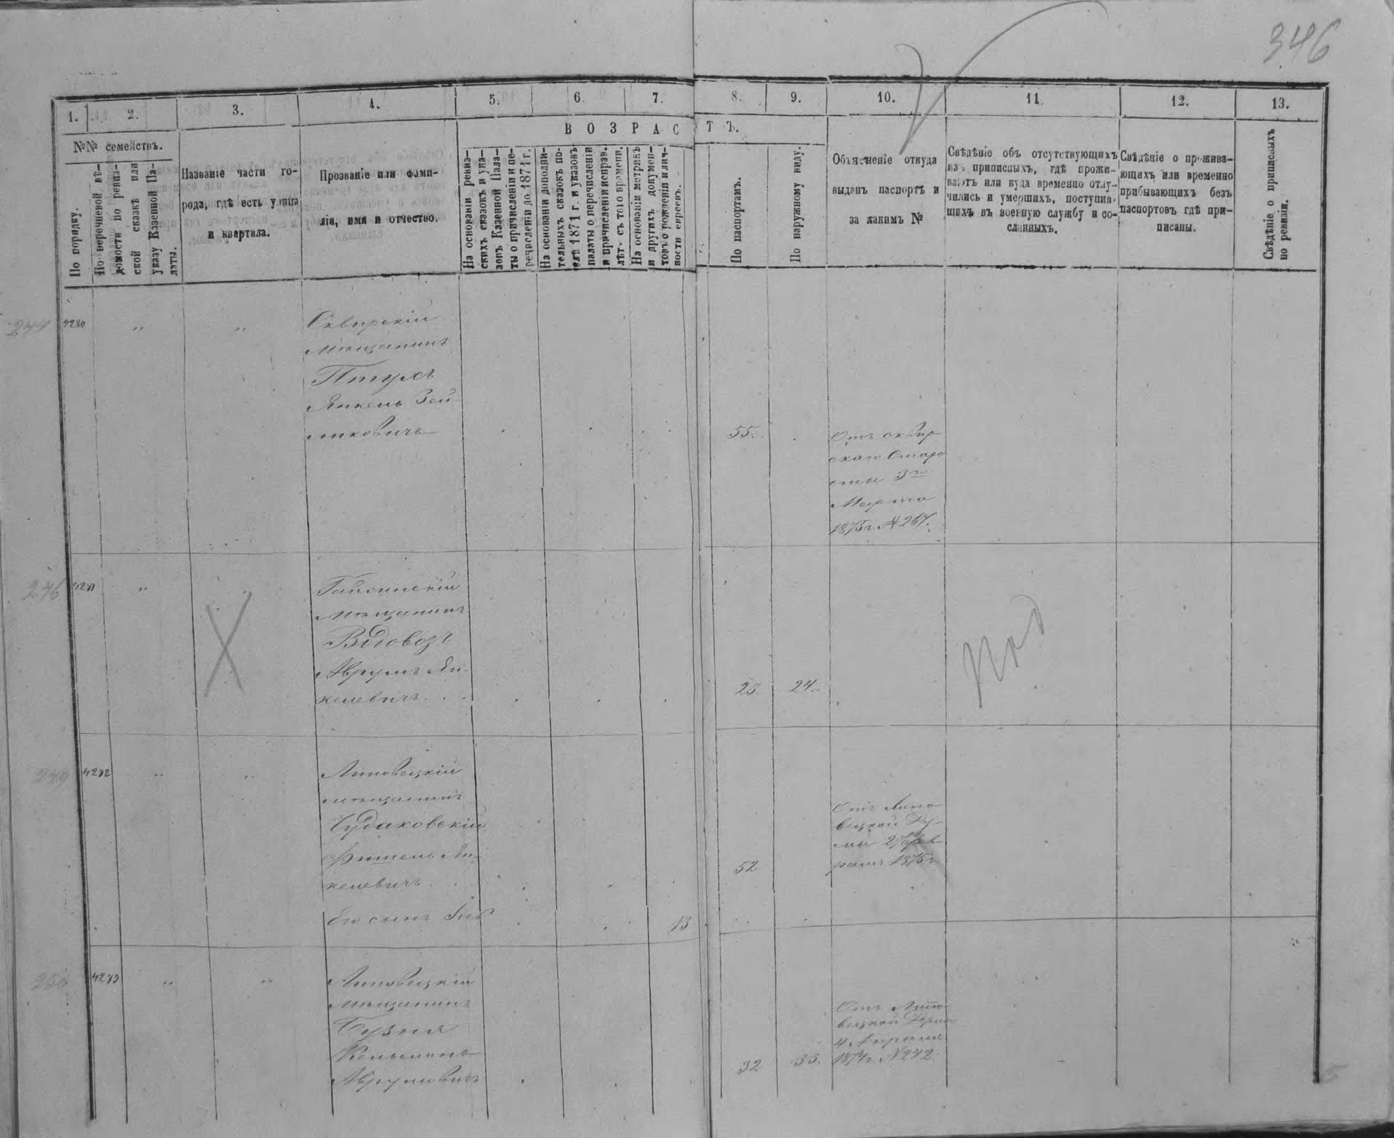 346
1.
2.
3.
4.
5.
6.
7.
8.
9.
10.
11
12.
13.
ВОЗРАСТЪ.
№№ семействъ.
По порядку.
По перечневой вѣ-
домости по ревиз-
ской сказкѣ или
указу Казенной Па-
латы.
Названіе части го-
рода, гдѣ есть улица
и квартила.
Прозваніе или фами-
лія, имя и отчество.
На основаніи ревиз-
скихъ сказокъ и ука-
зовъ Казенной Пала-
ты о причисленіи и пе-
речисленіи до 1871 г.
На основаніи дополни-
тельныхъ сказокъ по-
слѣ 1871 г. и указовъ
палаты о перечисленіи
и причисленіи исправ.
лѣтъ съ того времени.
На основаніи метрикъ
и другихъ докумен-
товъ о рожденіи и лич-
ности евреевъ.
По паспортамъ.
По наружному виду.
Объясненіе откуда
выданъ паспортъ и
за какимъ №
Свѣдѣніе объ отсутствующихъ
изъ приписныхъ, гдѣ прожи-
ваютъ или куда временно отлу-
чились и умершихъ, поступив-
шихъ въ военную службу и со-
сланныхъ.
Свѣдѣніе о прожива-
ющихъ или временно
прибывающихъ безъ
паспортовъ гдѣ при-
писаны.
Свѣдѣніе о приписныхъ
по ревизіи.
Сквирскій
мѣщанинъ
Птухъ
Янкель Зей
ликовичъ
55.
Отъ сквир
скаго Старо
сты 3го
Марта
1875 г. № 267.
276
"
Гайсинскій
мѣщанинъ
Вдовозъ
Аврумъ Ян-
келевичъ
25
24
4282
"
"
Липовецкій
мѣщанинъ
Чудаковскій
Фишель Ян-
келевичъ
52
Отъ Липо-
вецкой Ду-
мы 27 Фев
раля 1875 г.
Его сынъ
13
4283
"
"
Липовецкій
мѣщанинъ
Бузня
Кельманъ
Аврумовичъ
32
33.
Отъ Липо-
вецкой Думы
4 Апрѣля
1874 г. № 242